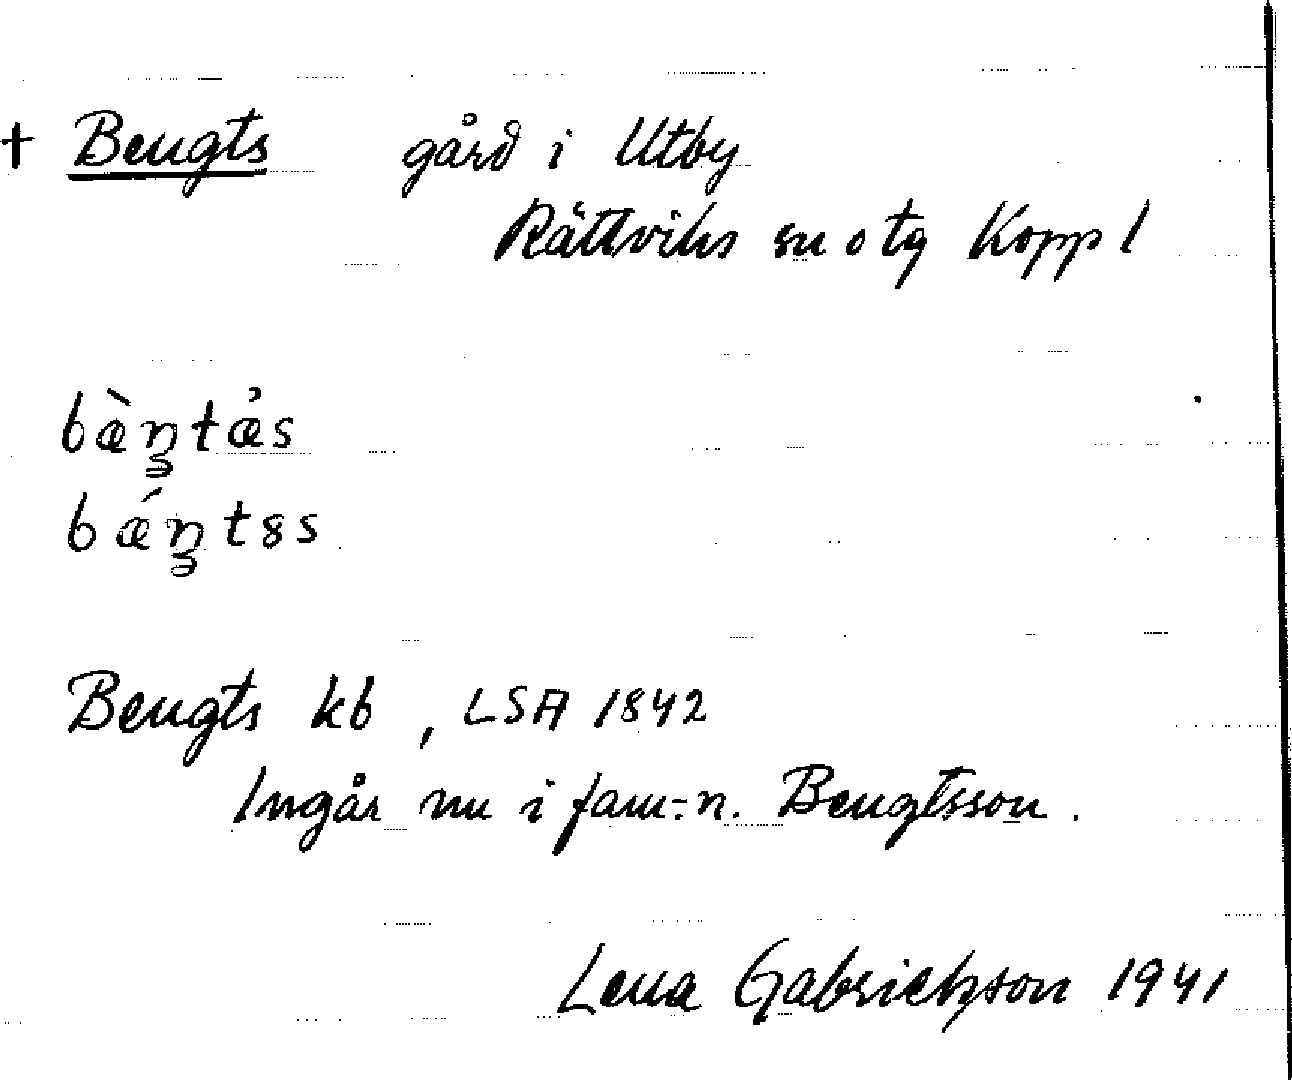 + Bengts gård i Utby
Rättviks sn o tg Kopp l
bæ̀n̠tæ̓s
bǽn̠tss
Bengts kb , LSA 1842
Ingår nu i fam:n. Bengtsson.
Lena Gabrielsson 1941